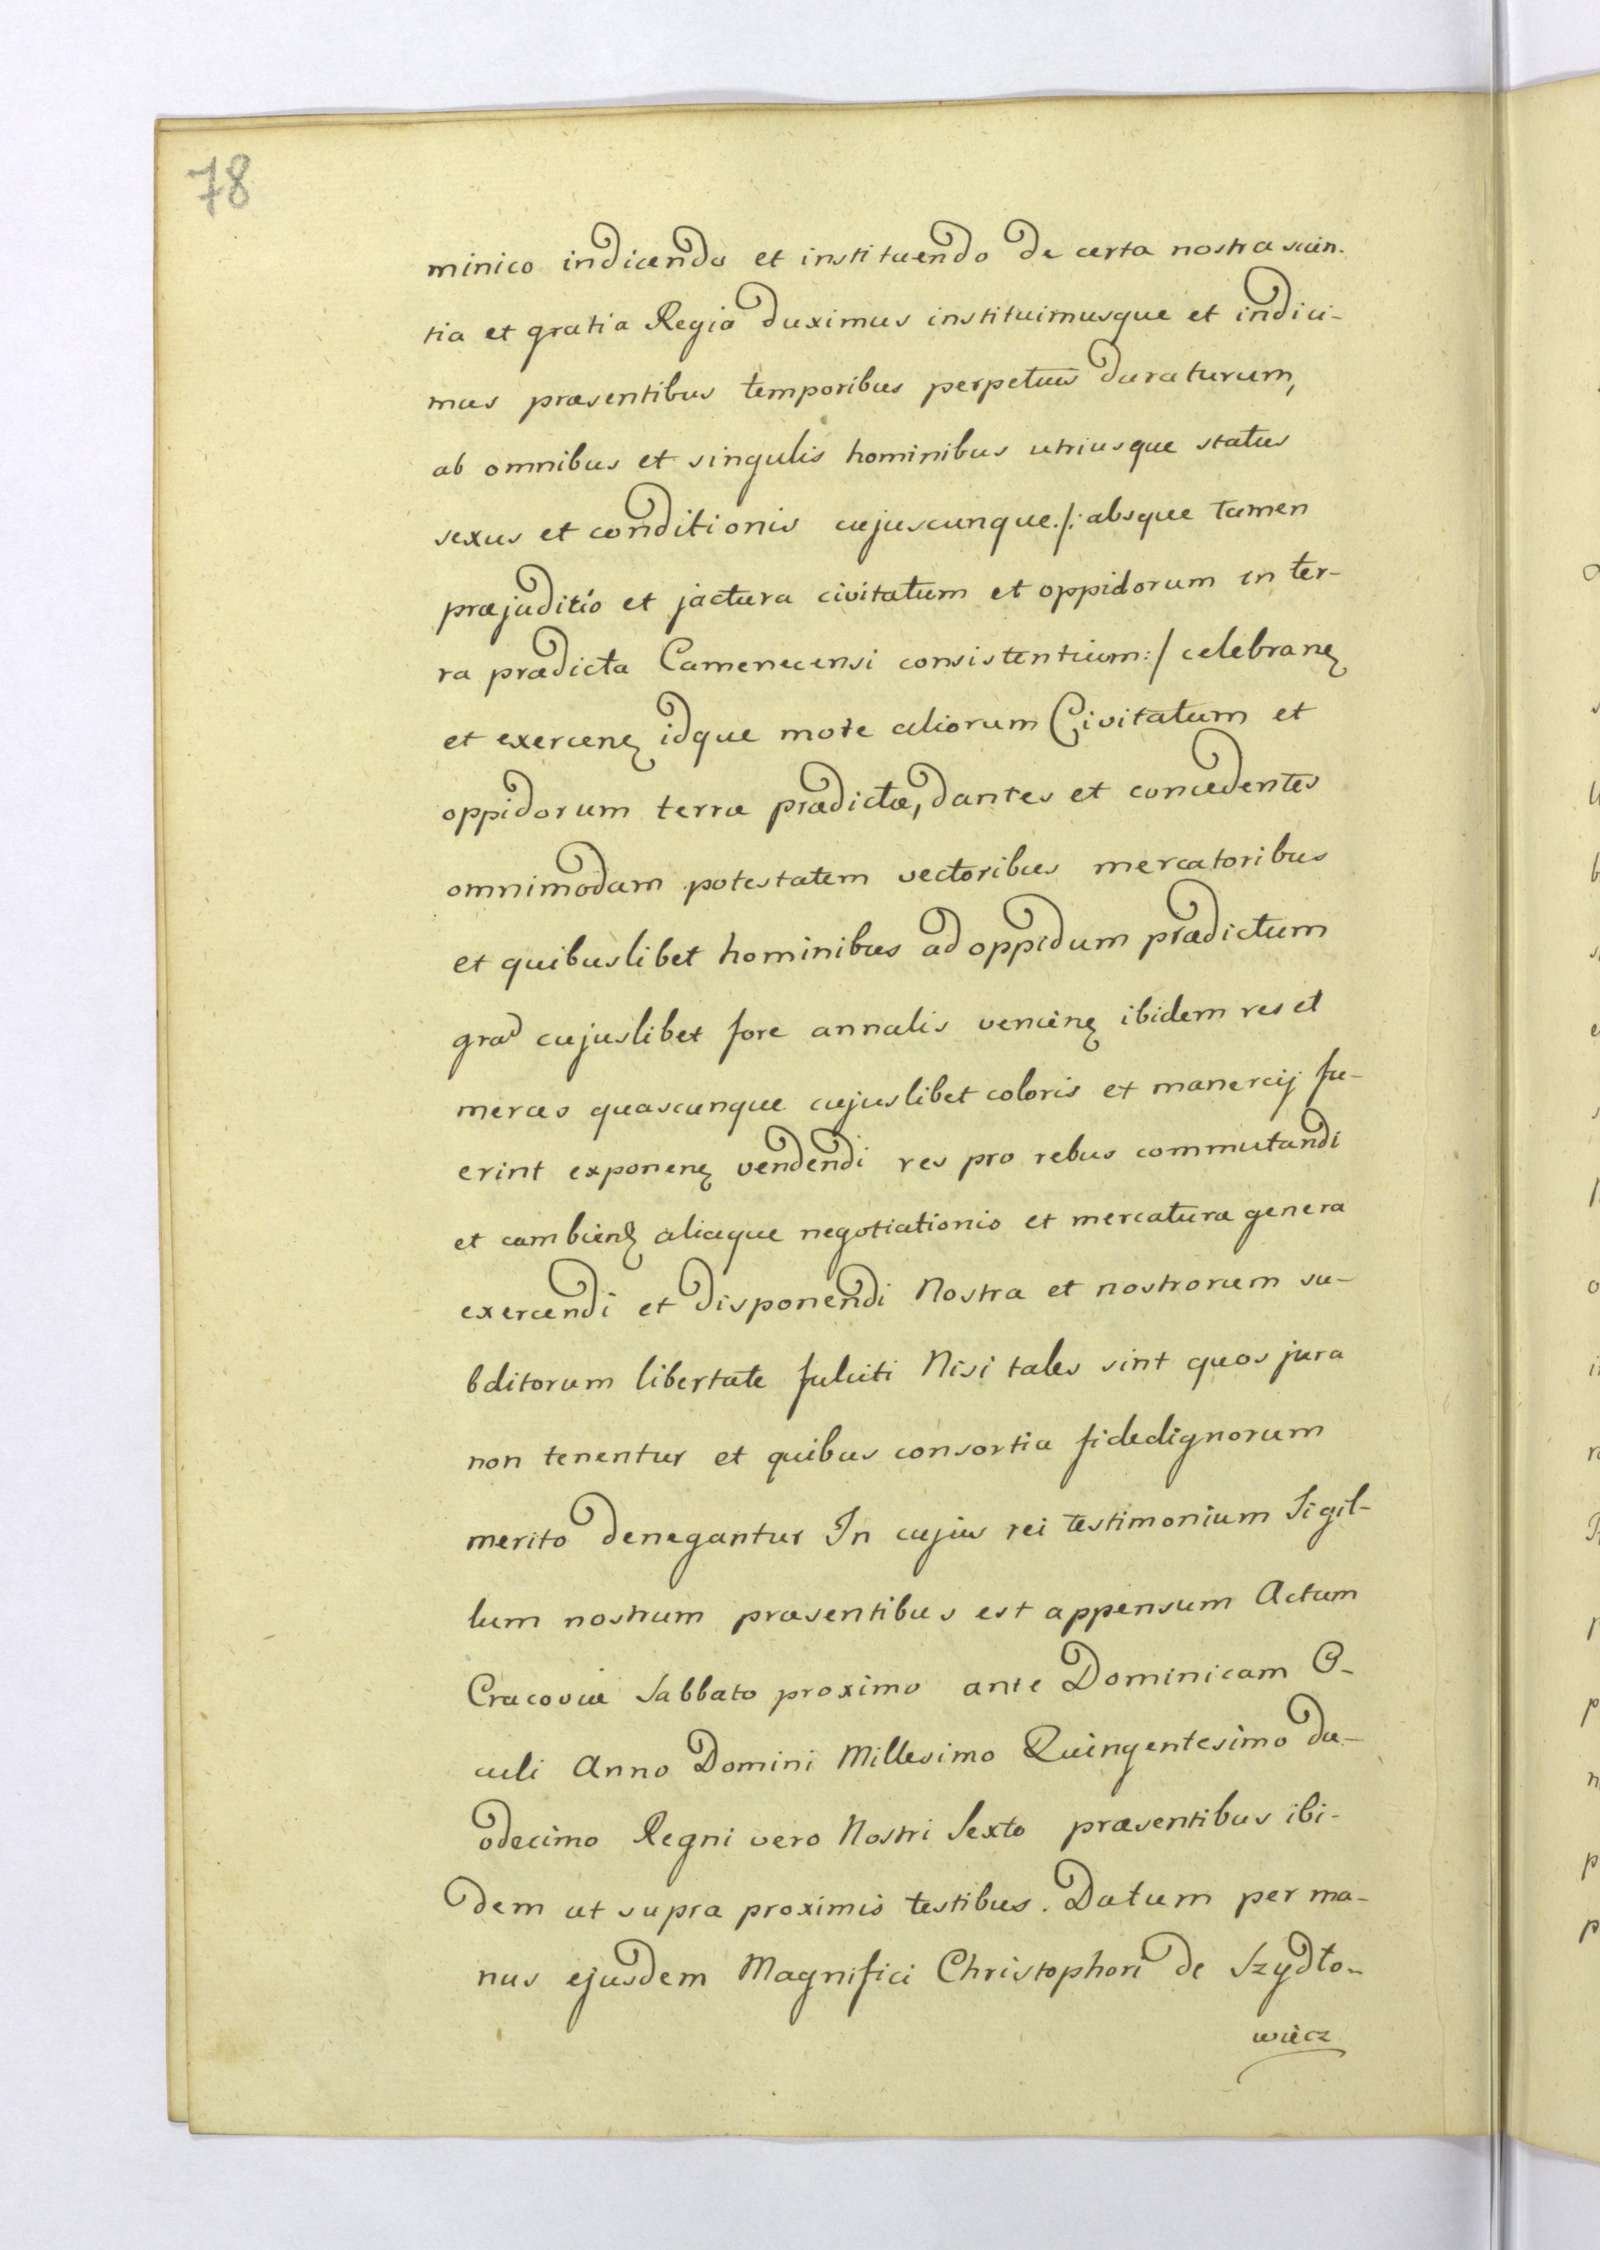 78
minico indicendo et instituendo de certa nostra scien-
tia et gratia Regia duximus instituimusque et indici-
mus præsentibus temporibus perpetuis duraturum,
ab omnibus et singulis hominibus utriusque status
sexus et conditionis cujuscunque /: absque tamen
præjuditio et jactura civitatum et oppidorum in ter-
ra prædicta Camenecensi consistentium :/ celebranꝫ
et exercenꝫ idque more aliorum Civitatum et
oppidorum terræ prædictæ, dantes et concedentes
omnimodam potestatem vectoribus mercatoribus
et quibuslibet hominibus ad oppidum prædictum
gra͠ cujuslibet fore annalis venienꝫ ibidem res et
merces quascunque cujuslibet coloris et manercij fu-
erint exponenꝫ vendendi res pro rebus commutandi
et cambienꝫ aliaque negotiationis et mercaturæ genera
exercendi et disponendi Nostra et nostrorum su-
bditorum libertate fulciti Nisi tales sint quos jura
non tenentur et quibus consortia fidedignorum
merito denegantur In cujus rei testimonium Sigil-
lum nostrum præsentibus est appensum Actum
Cracoviæ Sabbato proximo ante Dominicam O-
culi Anno Domini Millesimo Quingentesimo du-
odecimo Regni vero Nostri Sexto præsentibus ibi-
dem ut supra proximis testibus. Datum per ma-
nus ejusdem Magnifici Christophori de Szydło-
wiecz